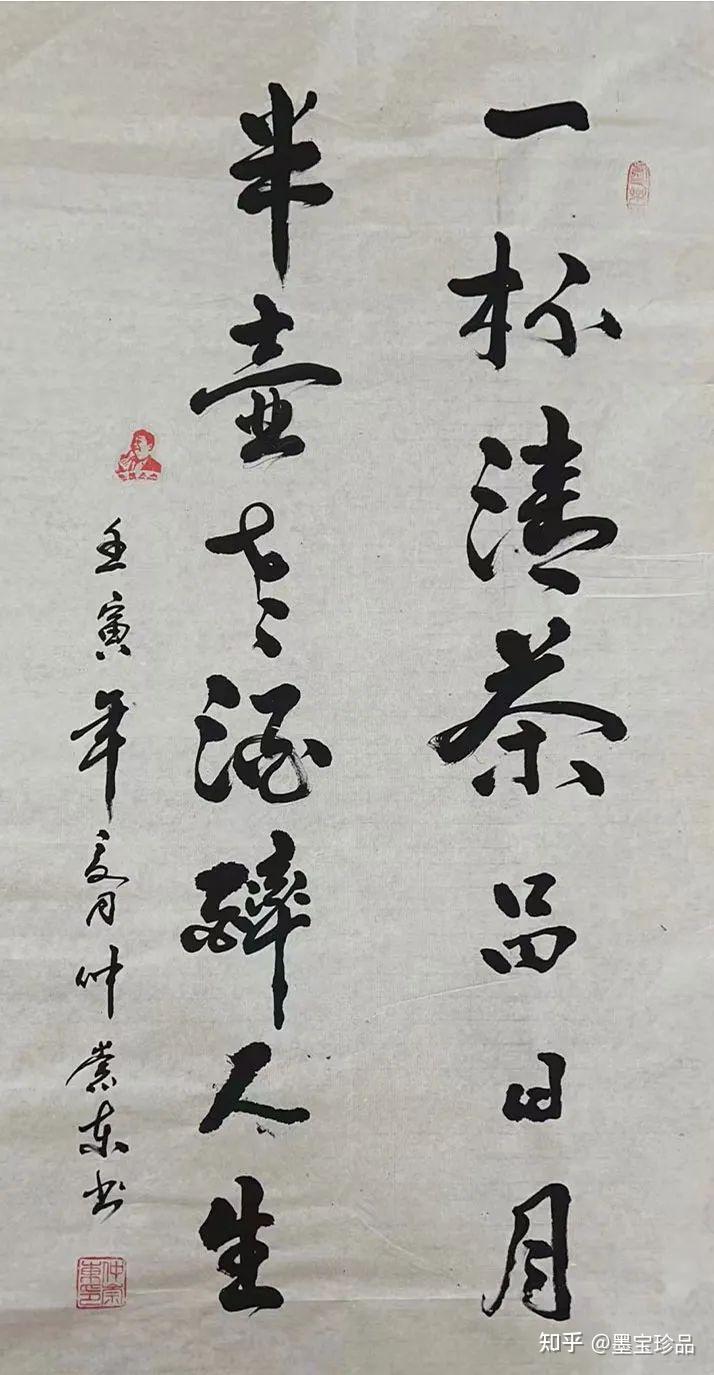 一杯清茶品日月
半壶老酒醉人生
壬寅年夏月仲崇东书
仲崇東印
知乎 @墨宝珍品